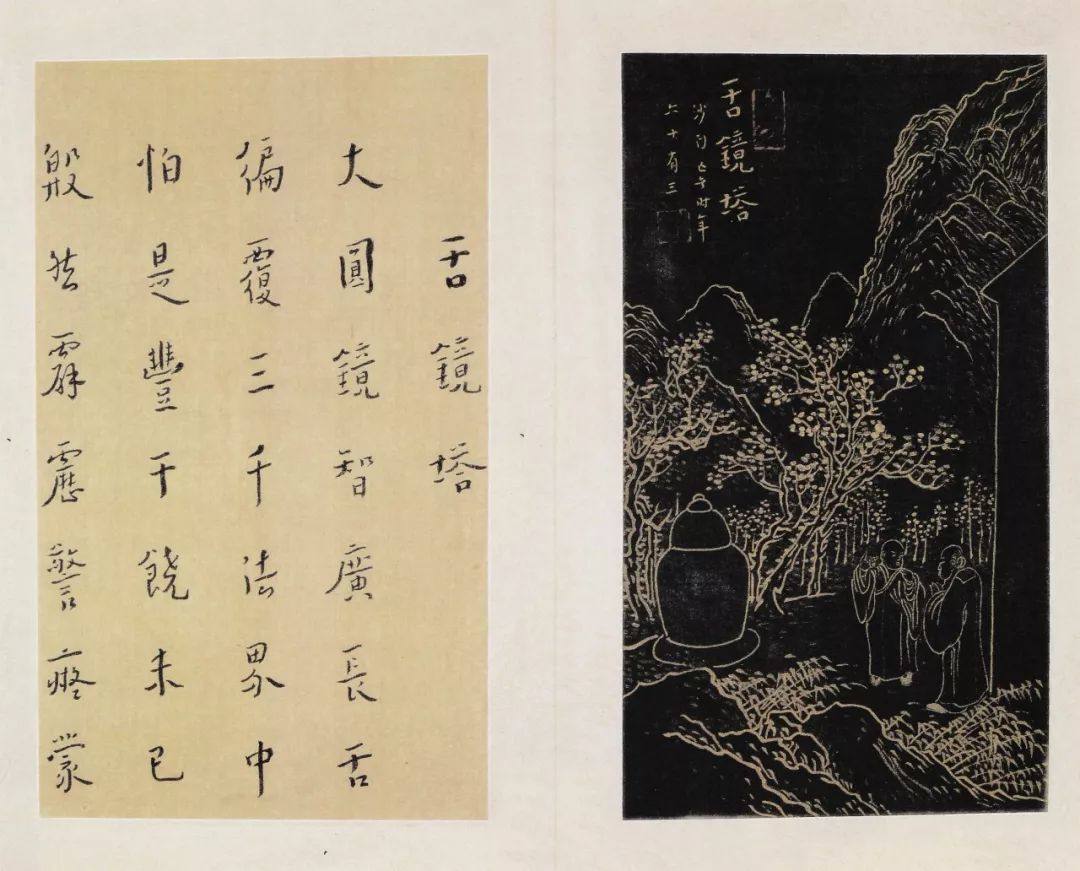 舌鏡塔
时年
六十有三
舌鏡塔
大圓鏡智廣長舌
徧覆三千法界中
怕是豐干饒未已
殷然霹靂警蒙